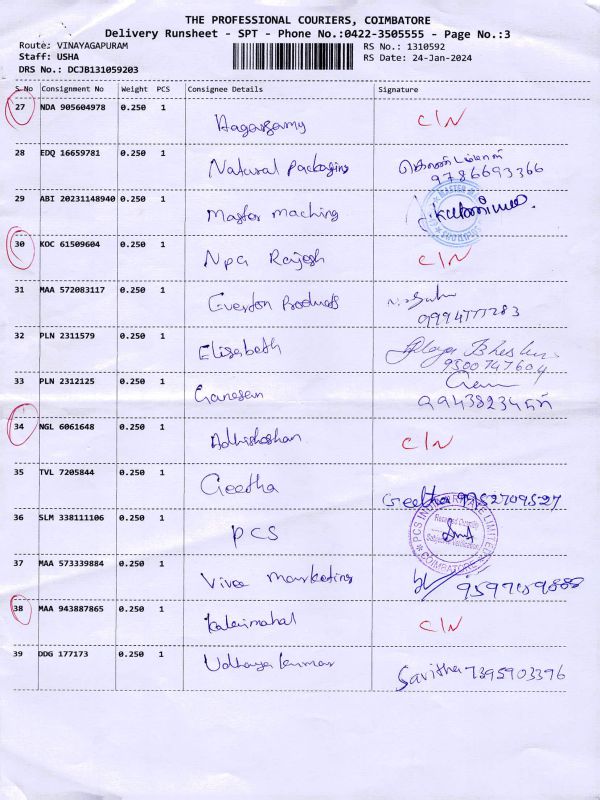 THE PROFESSIONAL COURIERS, COIMBATORE
Delivery Runsheet - SPT - Phone No.:0422-3505555 - Page No.:3
Route: VINAYAGAPURAM RS No.: 1310592
Staff: USHA RS Date: 24-Jan-2024
DRS No.: DCJB131059203
S.No Consignment No Weight PCS Consignee Details Signature
27 NDA 905604978 0.250 1
C/N
28 EDQ 16659781 0.250 1
Natural Packaging 9786693366
29 ABI 20231148940 0.250 1
Master maching
30 KOC 61509604 0.250 1
Npa Rajesh C/N
31 MAA 572083117 0.250 1
Everton Products 9994777283
32 PLN 2311579 0.250 1
Elisabeth 9300747604
33 PLN 2312125 0.250 1
Ganesan
34 NGL 6061648 0.250 1
Adhishashan C/N
35 TVL 7205844 0.250 1
Geetha Geetha 9952709527
36 SLM 338111106 0.250 1
PCS
37 MAA 573339884 0.250 1
Viva Marketing
38 MAA 943887865 0.250 1
Kalaimahal C/N
39 DDG 177173 0.250 1
Udhaya kumar Savitha 7395903396